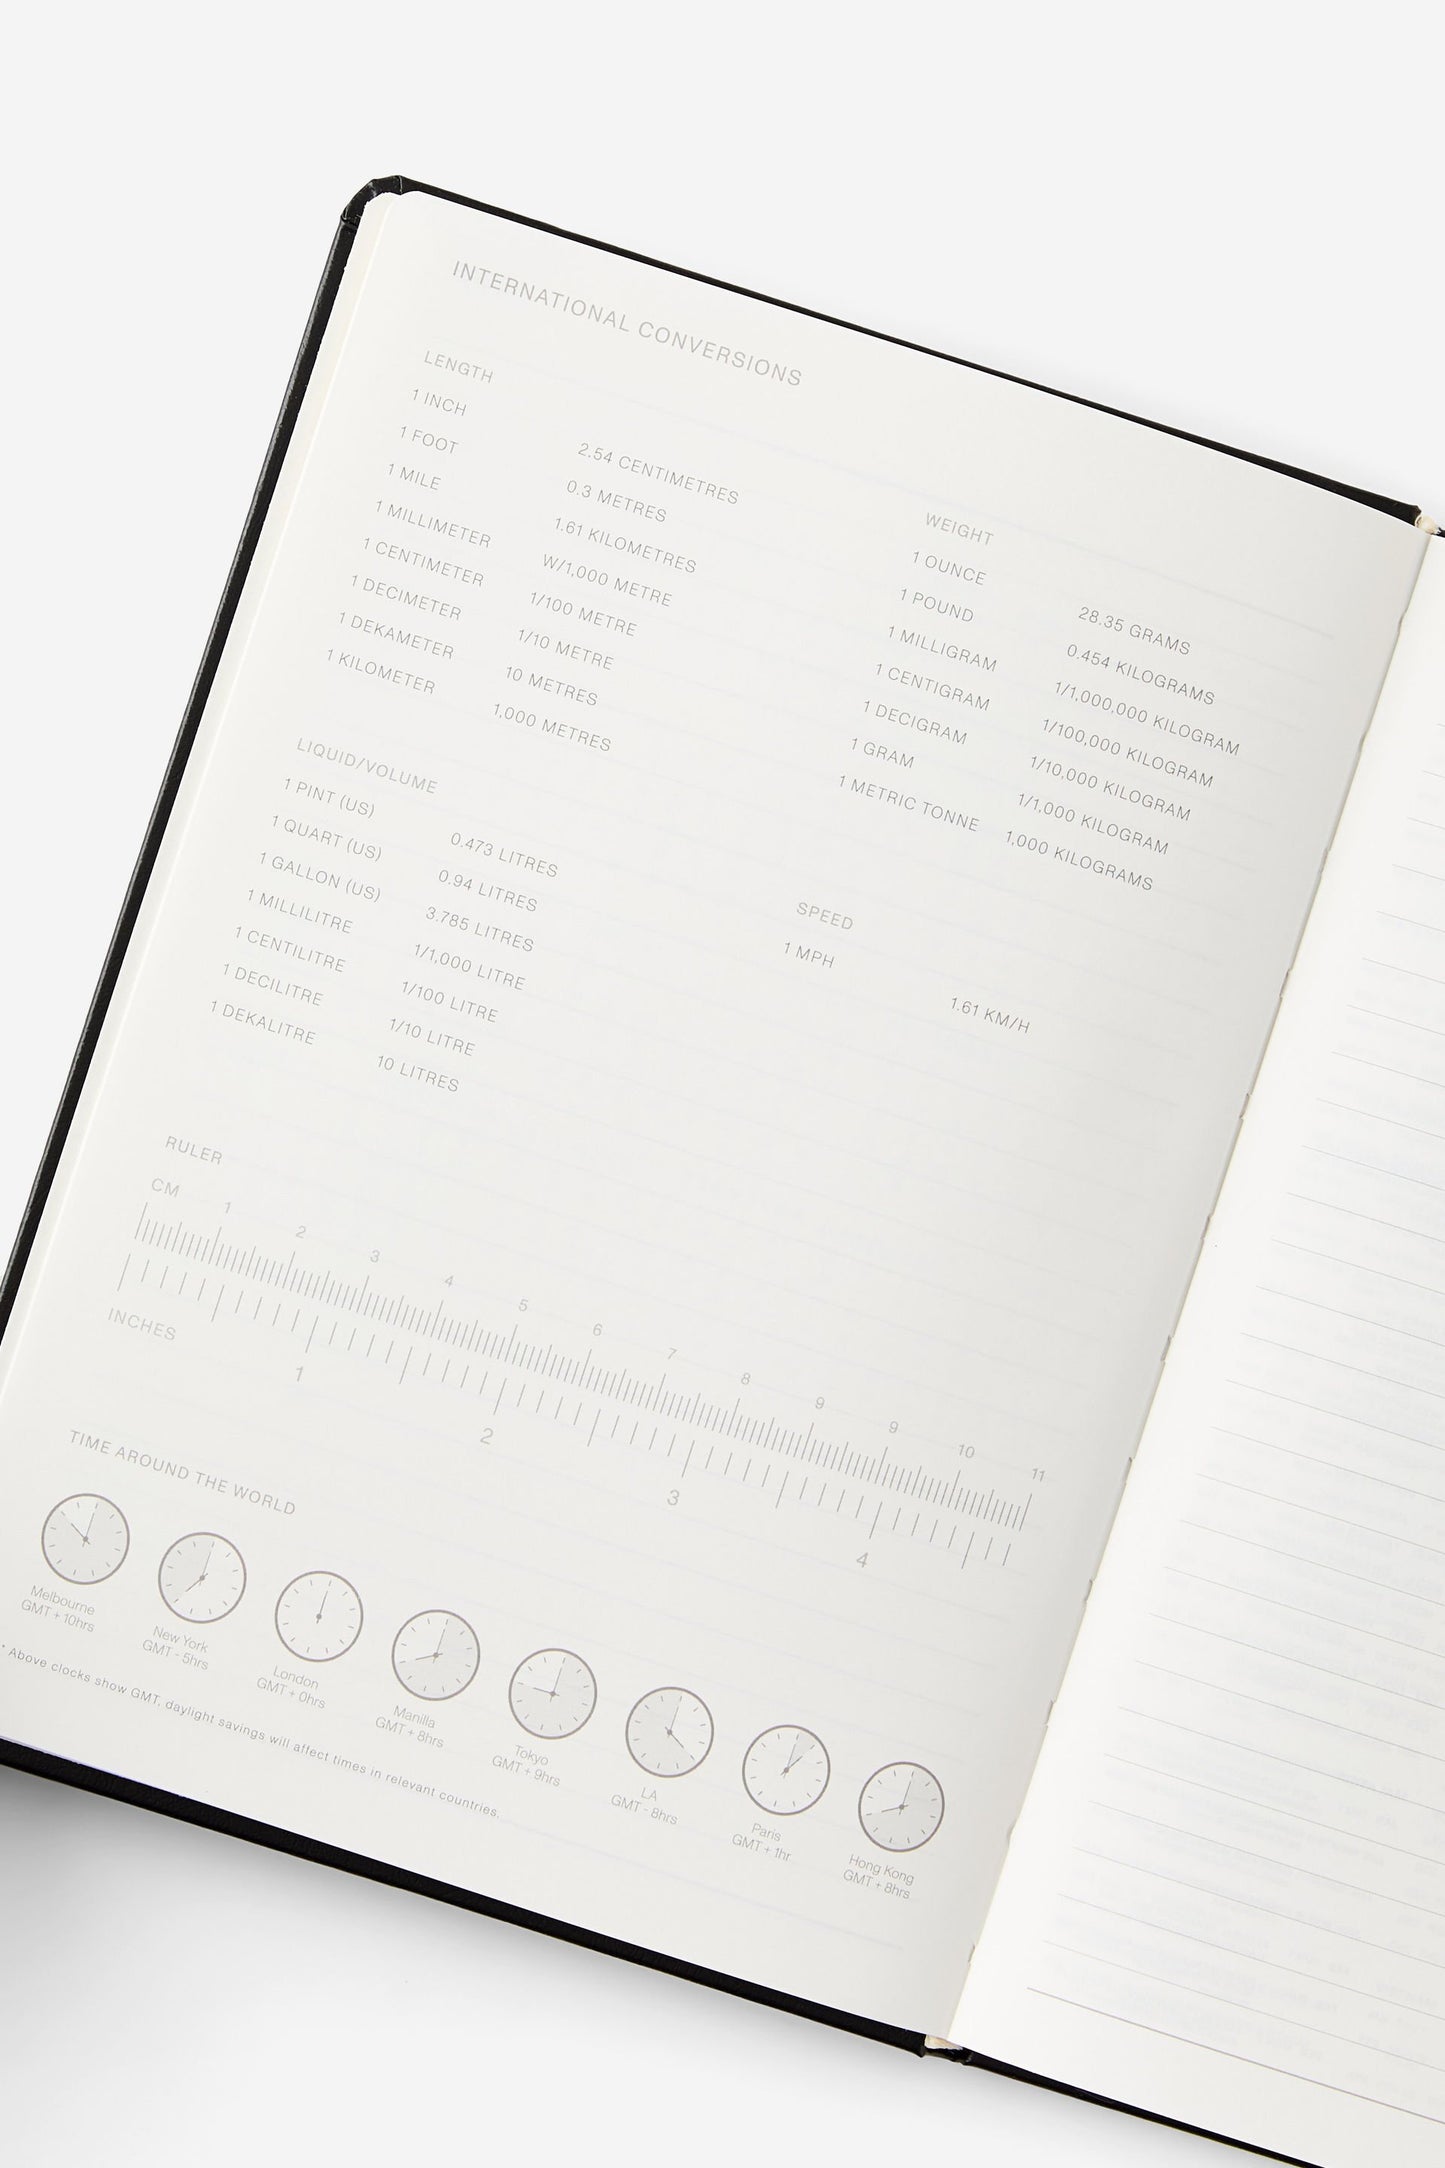 INTERNATIONAL CONVERSIONS
LENGTH
1 INCH 2.54 CENTIMETRES
1 FOOT 0.3 METRES
1 MILE 1.61 KILOMETRES
1 MILLIMETER W/1,000 METRE
1 CENTIMETER 1/100 METRE
1 DECIMETER 1/10 METRE
1 DEKAMETER 10 METRES
1 KILOMETER 1,000 METRES
WEIGHT
1 OUNCE 28.35 GRAMS
1 POUND 0.454 KILOGRAMS
1 MILLIGRAM 1/1,000,000 KILOGRAM
1 CENTIGRAM 1/100,000 KILOGRAM
1 DECIGRAM 1/10,000 KILOGRAM
1 GRAM 1/1,000 KILOGRAM
1 METRIC TONNE 1,000 KILOGRAMS
LIQUID/VOLUME
1 PINT (US) 0.473 LITRES
1 QUART (US) 0.94 LITRES
1 GALLON (US) 3.785 LITRES
1 MILLILITRE 1/1,000 LITRE
1 CENTILITRE 1/100 LITRE
1 DECILITRE 1/10 LITRE
1 DEKALITRE 10 LITRES
SPEED
1 MPH 1.61 KM/H
RULER
CM 1 2 3 4 5 6 7 8 9 9 10 11
INCHES 1 2 3 4
TIME AROUND THE WORLD
Melbourne
GMT + 10hrs
New York
GMT - 5hrs
London
GMT + 0hrs
Manilla
GMT + 8hrs
Tokyo
GMT + 9hrs
LA
GMT - 8hrs
Paris
GMT + 1hr
Hong Kong
GMT + 8hrs
* Above clocks show GMT, daylight savings will affect times in relevant countries.